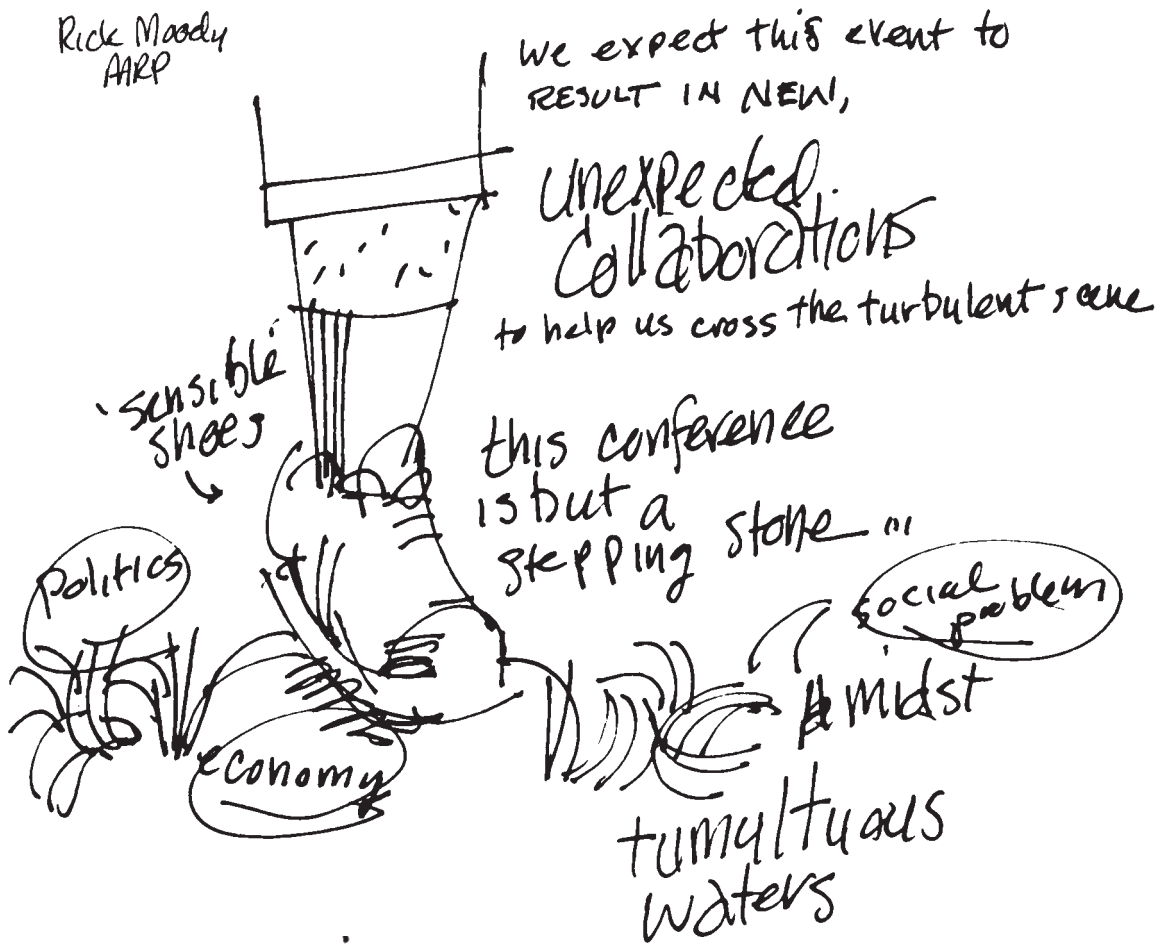 Rick Moody
AARP
we expect this event to
RESULT IN NEW,
unexpected
collaborations
to help us cross the turbulent scene
sensible
shoes
this conference
is but a
stepping stone...
politics
economy
social
problem
Amidst
tumultuous
waters